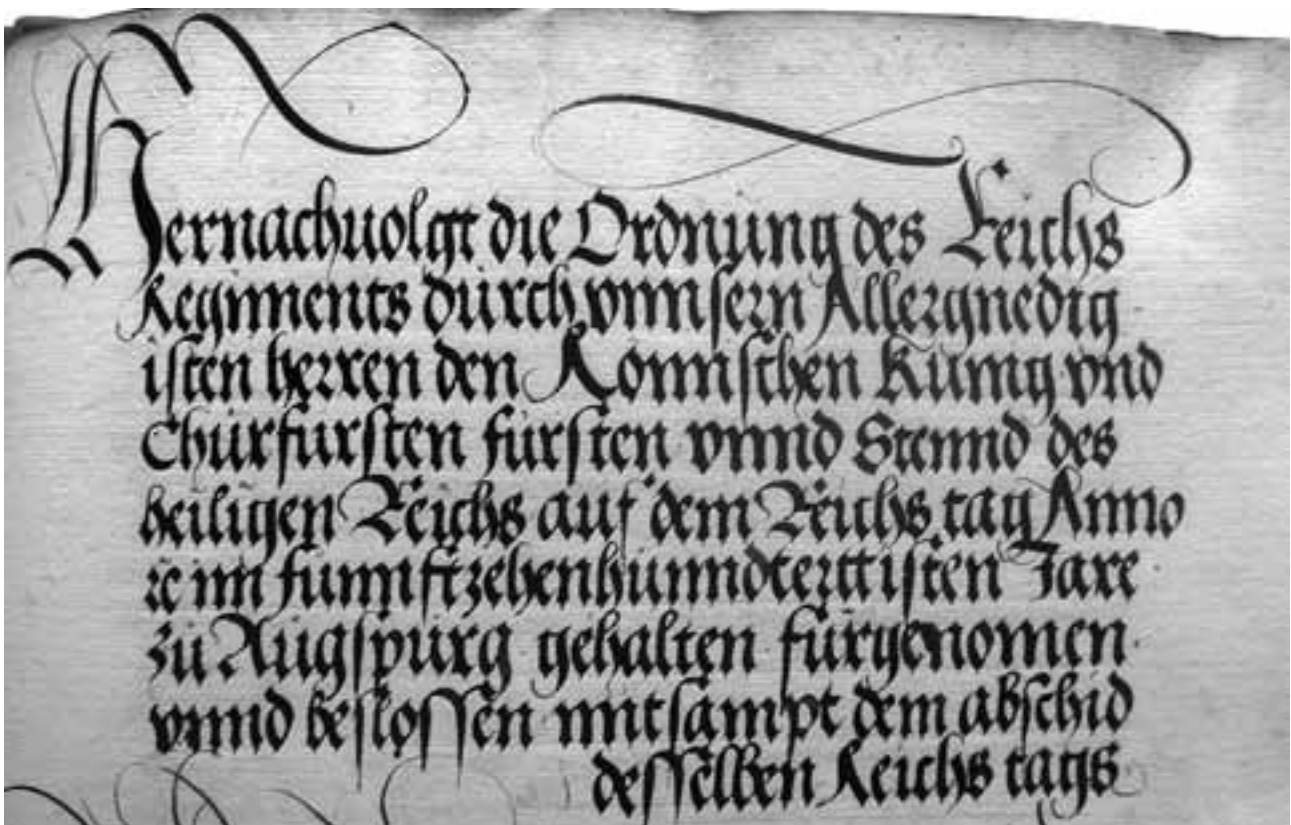 Hernachuolgt die Ordnung des Reichs
Regiments durch vnnsern Allergnedig
isten herren den Romischen Kunig vnd
Churfursten fürsten vnnd Stennd des
heiligen Reichs auf dem Reichs tag Anno
rc im funnftzehenhunndterttisten Jare
zu Augspurg gehalten fürgenomen
vnnd beslossen mitsampt dem abschid
desselben Reichs tags